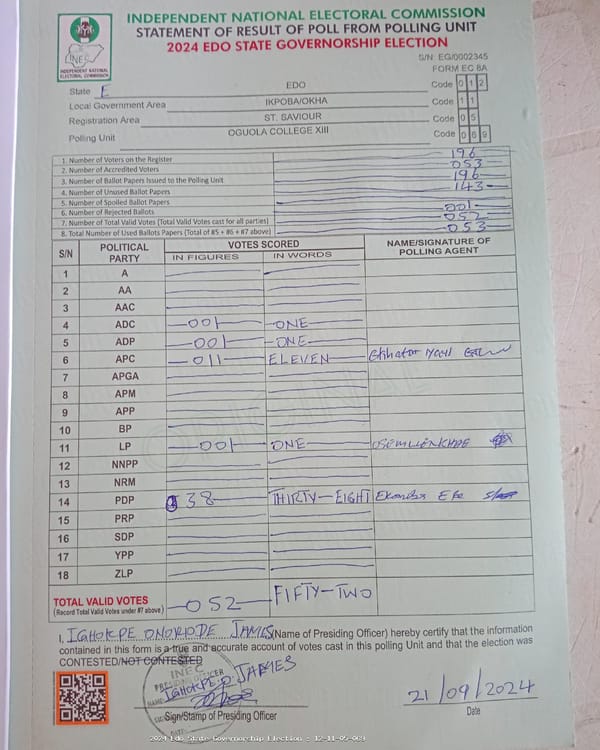 INDEPENDENT NATIONAL ELECTORAL COMMISSION
STATEMENT OF RESULT OF POLL FROM POLLING UNIT
2024 EDO STATE GOVERNORSHIP ELECTION
INEC
INDEPENDENT NATIONAL
ELECTORAL COMMISSION
S/N: EG/0002345
FORM EC 8A
State E EDO Code 0 1 2
Local Government Area IKPOBA/OKHA Code 1 1
Registration Area ST. SAVIOUR Code 0 5
Polling Unit OGUOLA COLLEGE XIII Code 0 6 9
1. Number of Voters on the Register 196
2. Number of Accredited Voters 053
3. Number of Ballot Papers Issued to the Polling Unit 196
4. Number of Unused Ballot Papers 143
5. Number of Spoiled Ballot Papers
6. Number of Rejected Ballots 001
7. Number of Total Valid Votes (Total Valid Votes cast for all parties) 052
8. Total Number of Used Ballots Papers (Total of #5 + #6 + #7 above) 053
S/N POLITICAL PARTY VOTES SCORED NAME/SIGNATURE OF POLLING AGENT
IN FIGURES IN WORDS
1 A
2 AA
3 AAC
4 ADC 001 ONE
5 ADP 001 ONE
6 APC 011 ELEVEN
7 APGA
8 APM
9 APP
10 BP
11 LP 001 ONE
12 NNPP
13 NRM
14 PDP 38 THIRTY-EIGHT
15 PRP
16 SDP
17 YPP
18 ZLP
TOTAL VALID VOTES 052 FIFTY-TWO
(Record Total Valid Votes under #7 above)
I, IGHOKPE ONORIODE JAMES (Name of Presiding Officer) hereby certify that the information
contained in this form is a true and accurate account of votes cast in this polling Unit and that the election was
CONTESTED/NOT CONTESTED
INEC
PRESIDING OFFICER
IGHOKPE O. JAMES
Sign/Stamp of Presiding Officer
21/09/2024
Date
2024 Edo State Governorship Election : 12-11-05-069